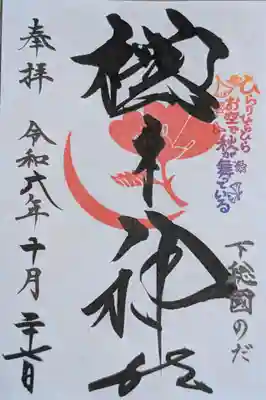 ひらりひらひら
お空で秋が舞っている
下総國のだ
櫻木神社
奉拝 令和六年十月二十七日